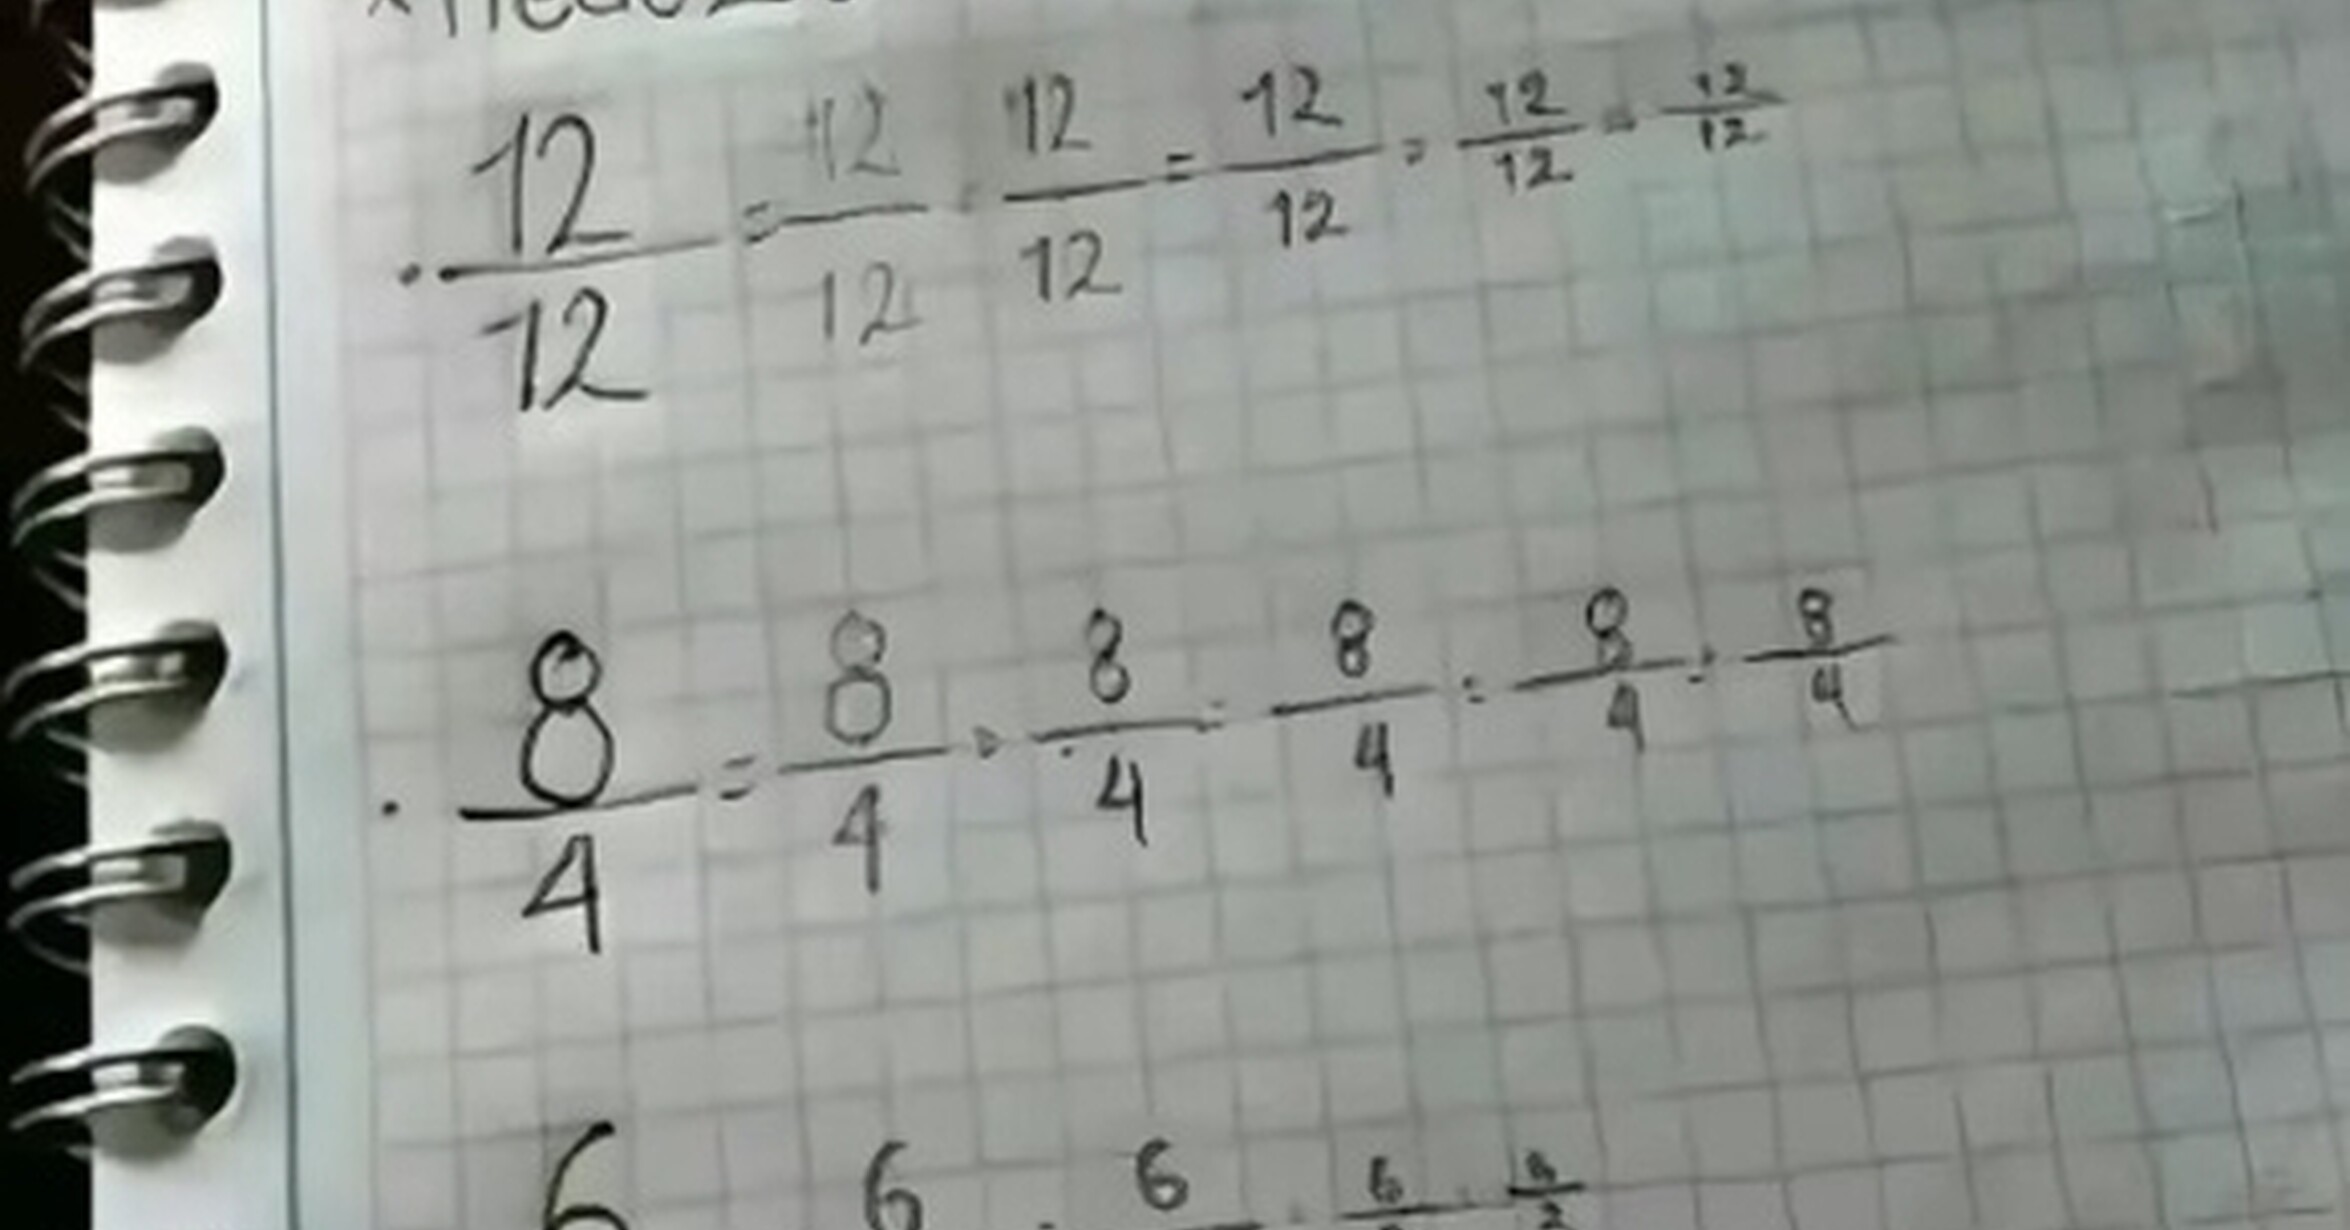 12/12 = 12/12 = 12/12 = 12/12 = 12/12 = 12/12
8/4 = 8/4 = 8/4 = 8/4 = 8/4 = 8/4
6 6 6 6